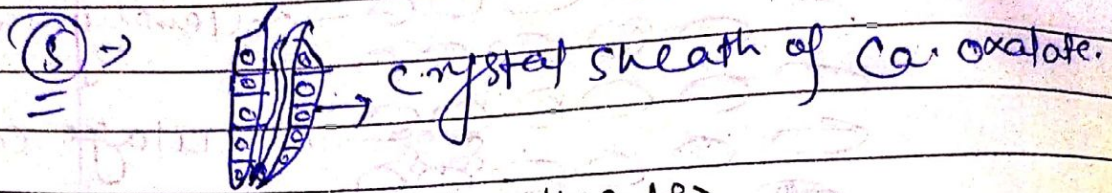 ⑤ → → crystal sheath of Ca. oxalate.